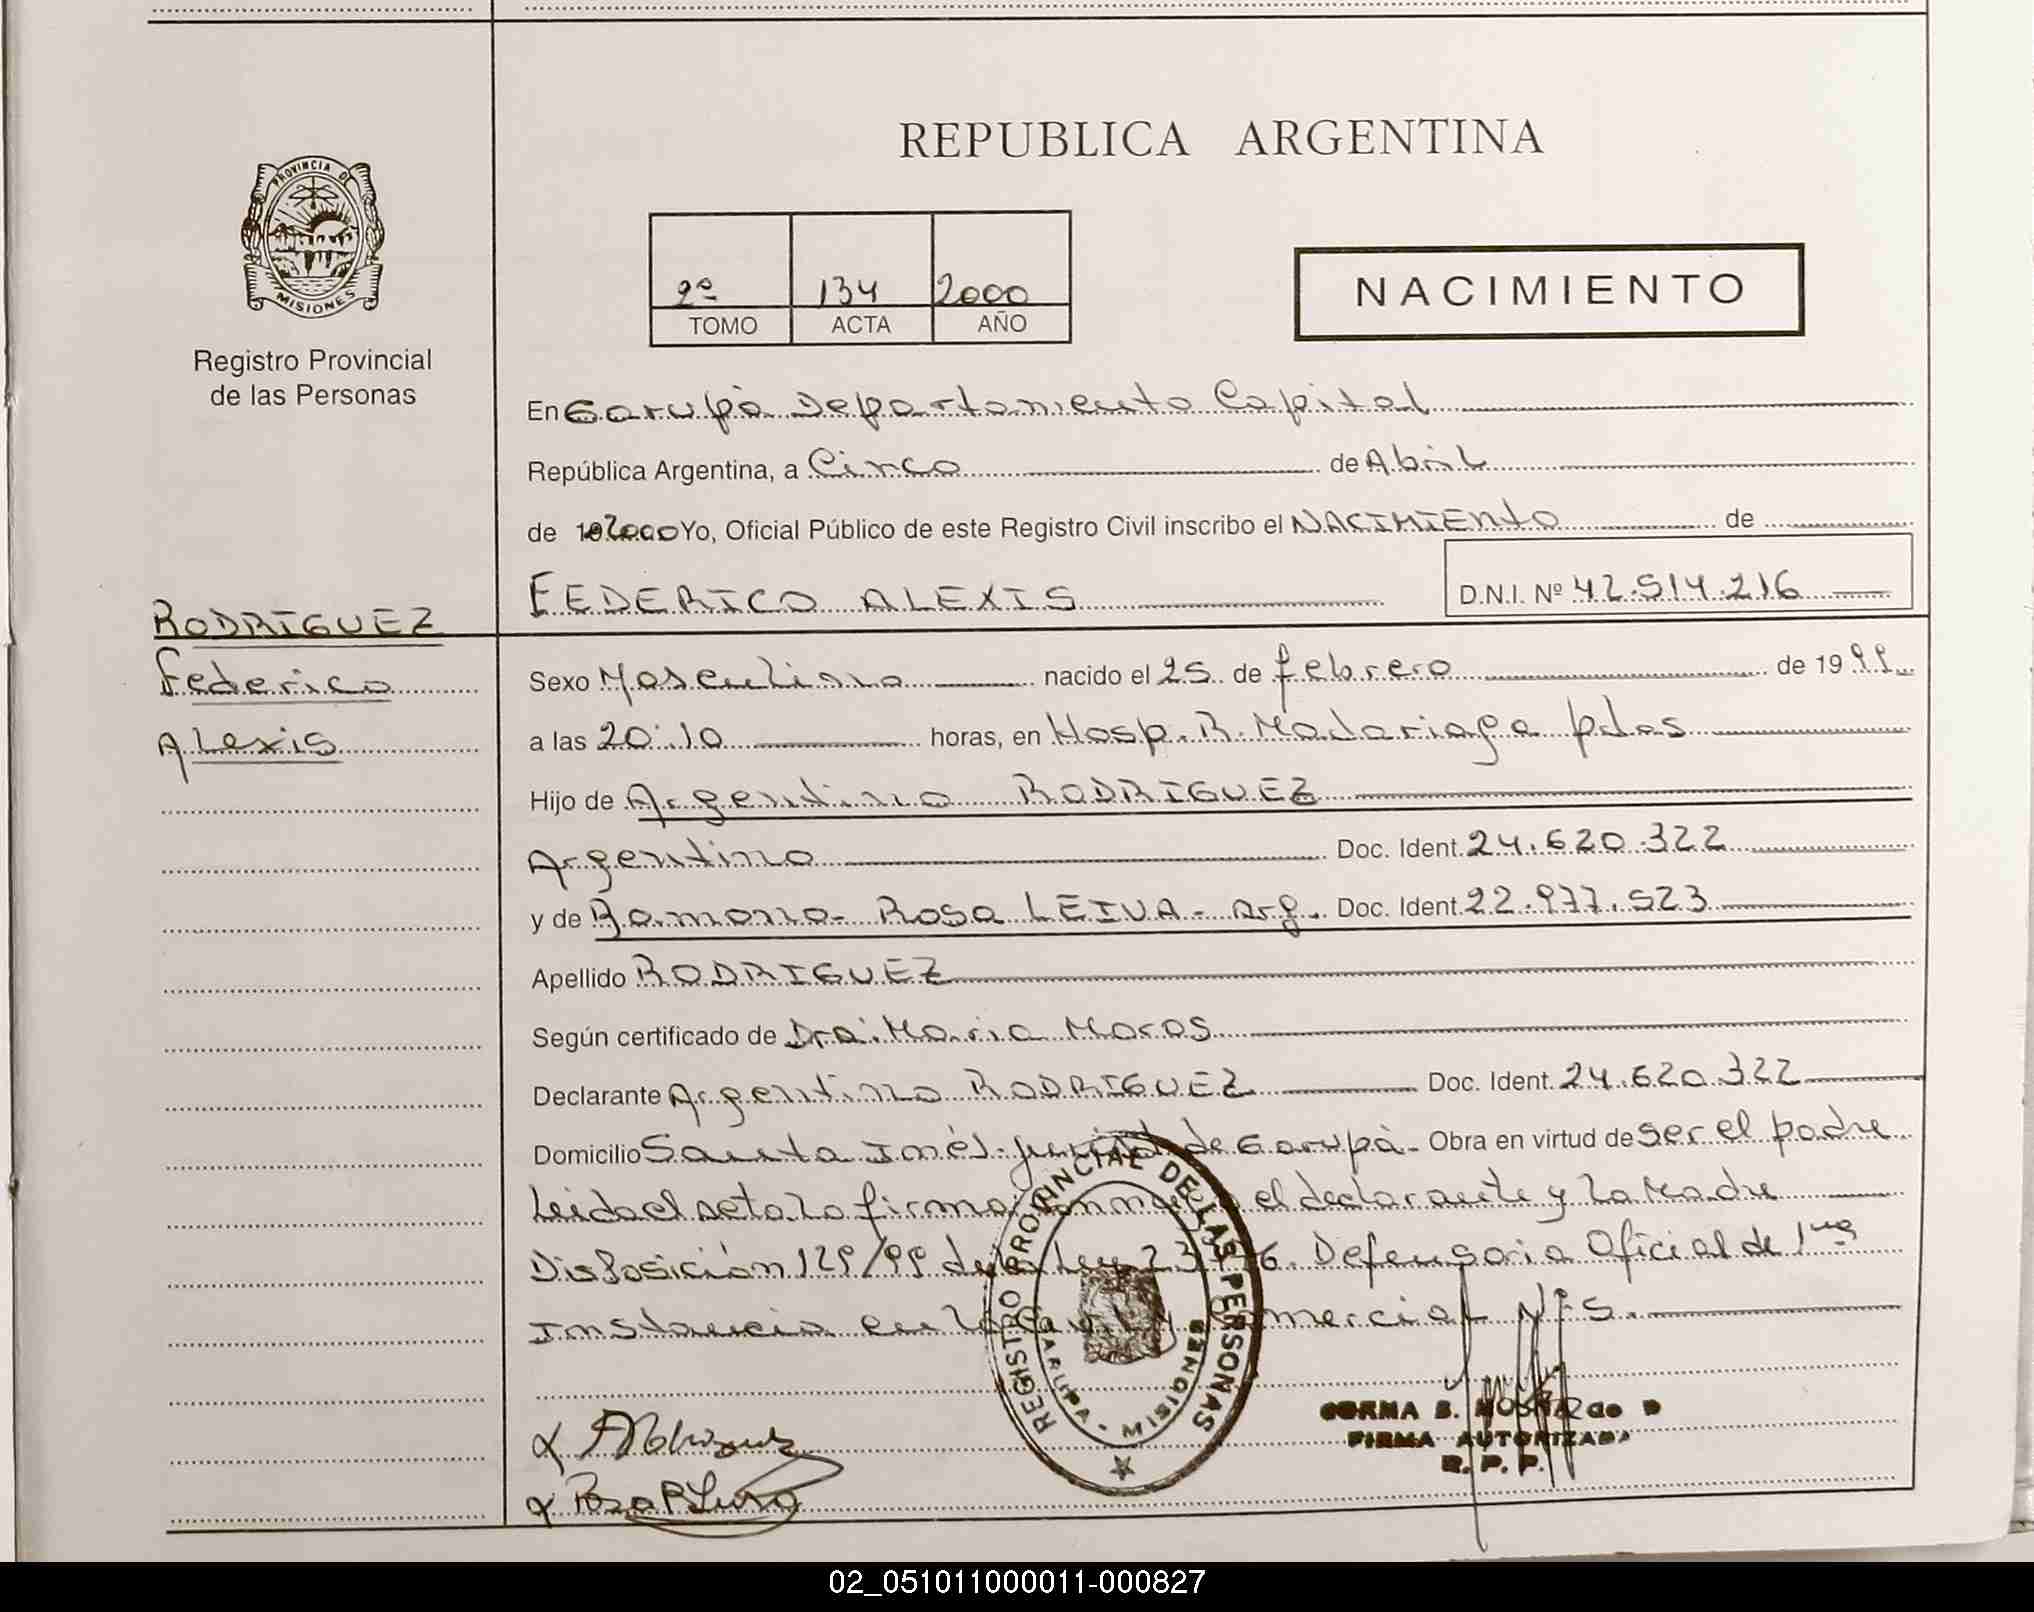 REPUBLICA ARGENTINA
PROVINCIA DE
MISIONES
Registro Provincial
de las Personas
2º 134 2000
TOMO ACTA AÑO
NACIMIENTO
En Garupà Departamento Capital
República Argentina, a Cinco de Abril
de 192000 Yo, Oficial Público de este Registro Civil inscribo el NACIMIENTO de
FEDERICO ALEXIS D.N.I. Nº 42.514.216
RODRIGUEZ
Federico
Alexis
Sexo Masculino nacido el 25 de febrero de 1999
a las 20:10 horas, en Hosp. R. Madariaga pdas
Hijo de Argentino RODRIGUEZ
Argentino Doc. Ident. 24.620.322
y de Ramona Rosa LEIVA - Arg. Doc. Ident. 22.977.523
Apellido RODRIGUEZ
Según certificado de Dra. Maria Moras
Declarante Argentino RODRIGUEZ Doc. Ident. 24.620.322
Domicilio Santa Inés de Garupà - Obra en virtud de ser el padre
Leida el acta la firman conmigo el declarante y la Madre
Disposición 129/99 de la Ley Defensoria Oficial de 1ra
Instancia en lo Civil y Comercial Nº 5.
REGISTRO PROVINCIAL DE LAS PERSONAS
GARUPA - MISIONES
FIRMA AUTORIZADA
R. P. P.
02_051011000011-000827